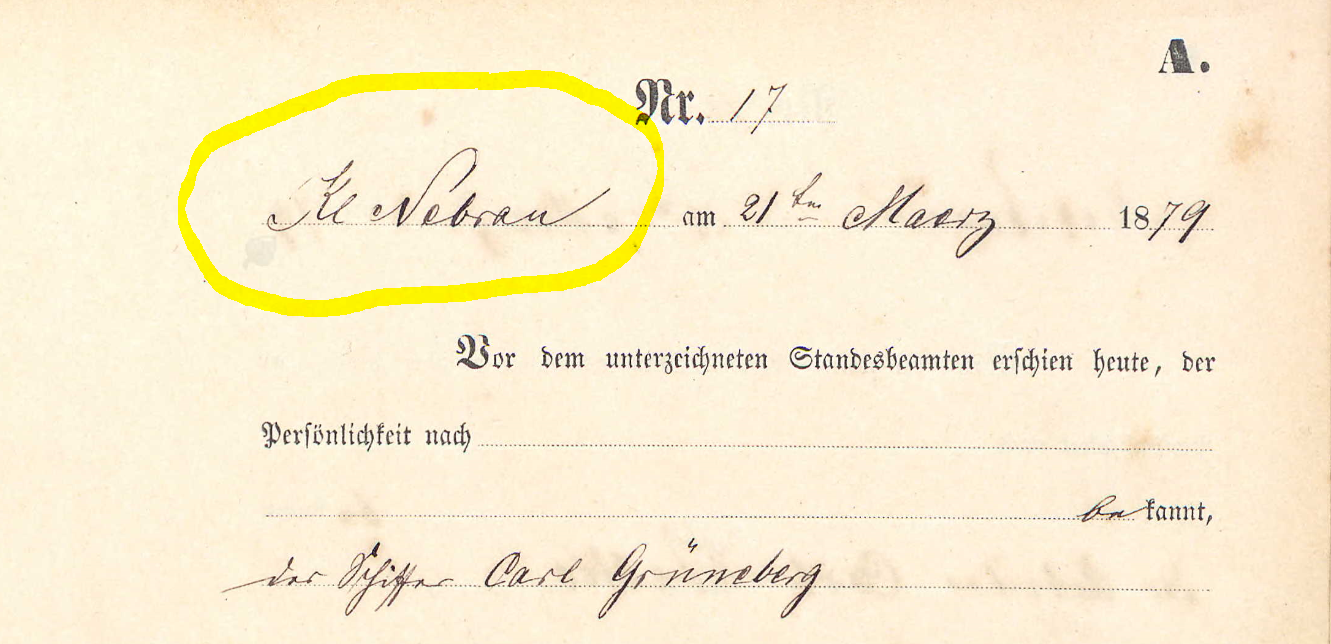 A.
Nr. 17
Kl Nebrau am 21ten Maerz 1879
Vor dem unterzeichneten Standesbeamten erschien heute, der
Persönlichkeit nach
bekannt,
der Schiffer Carl Grüneberg